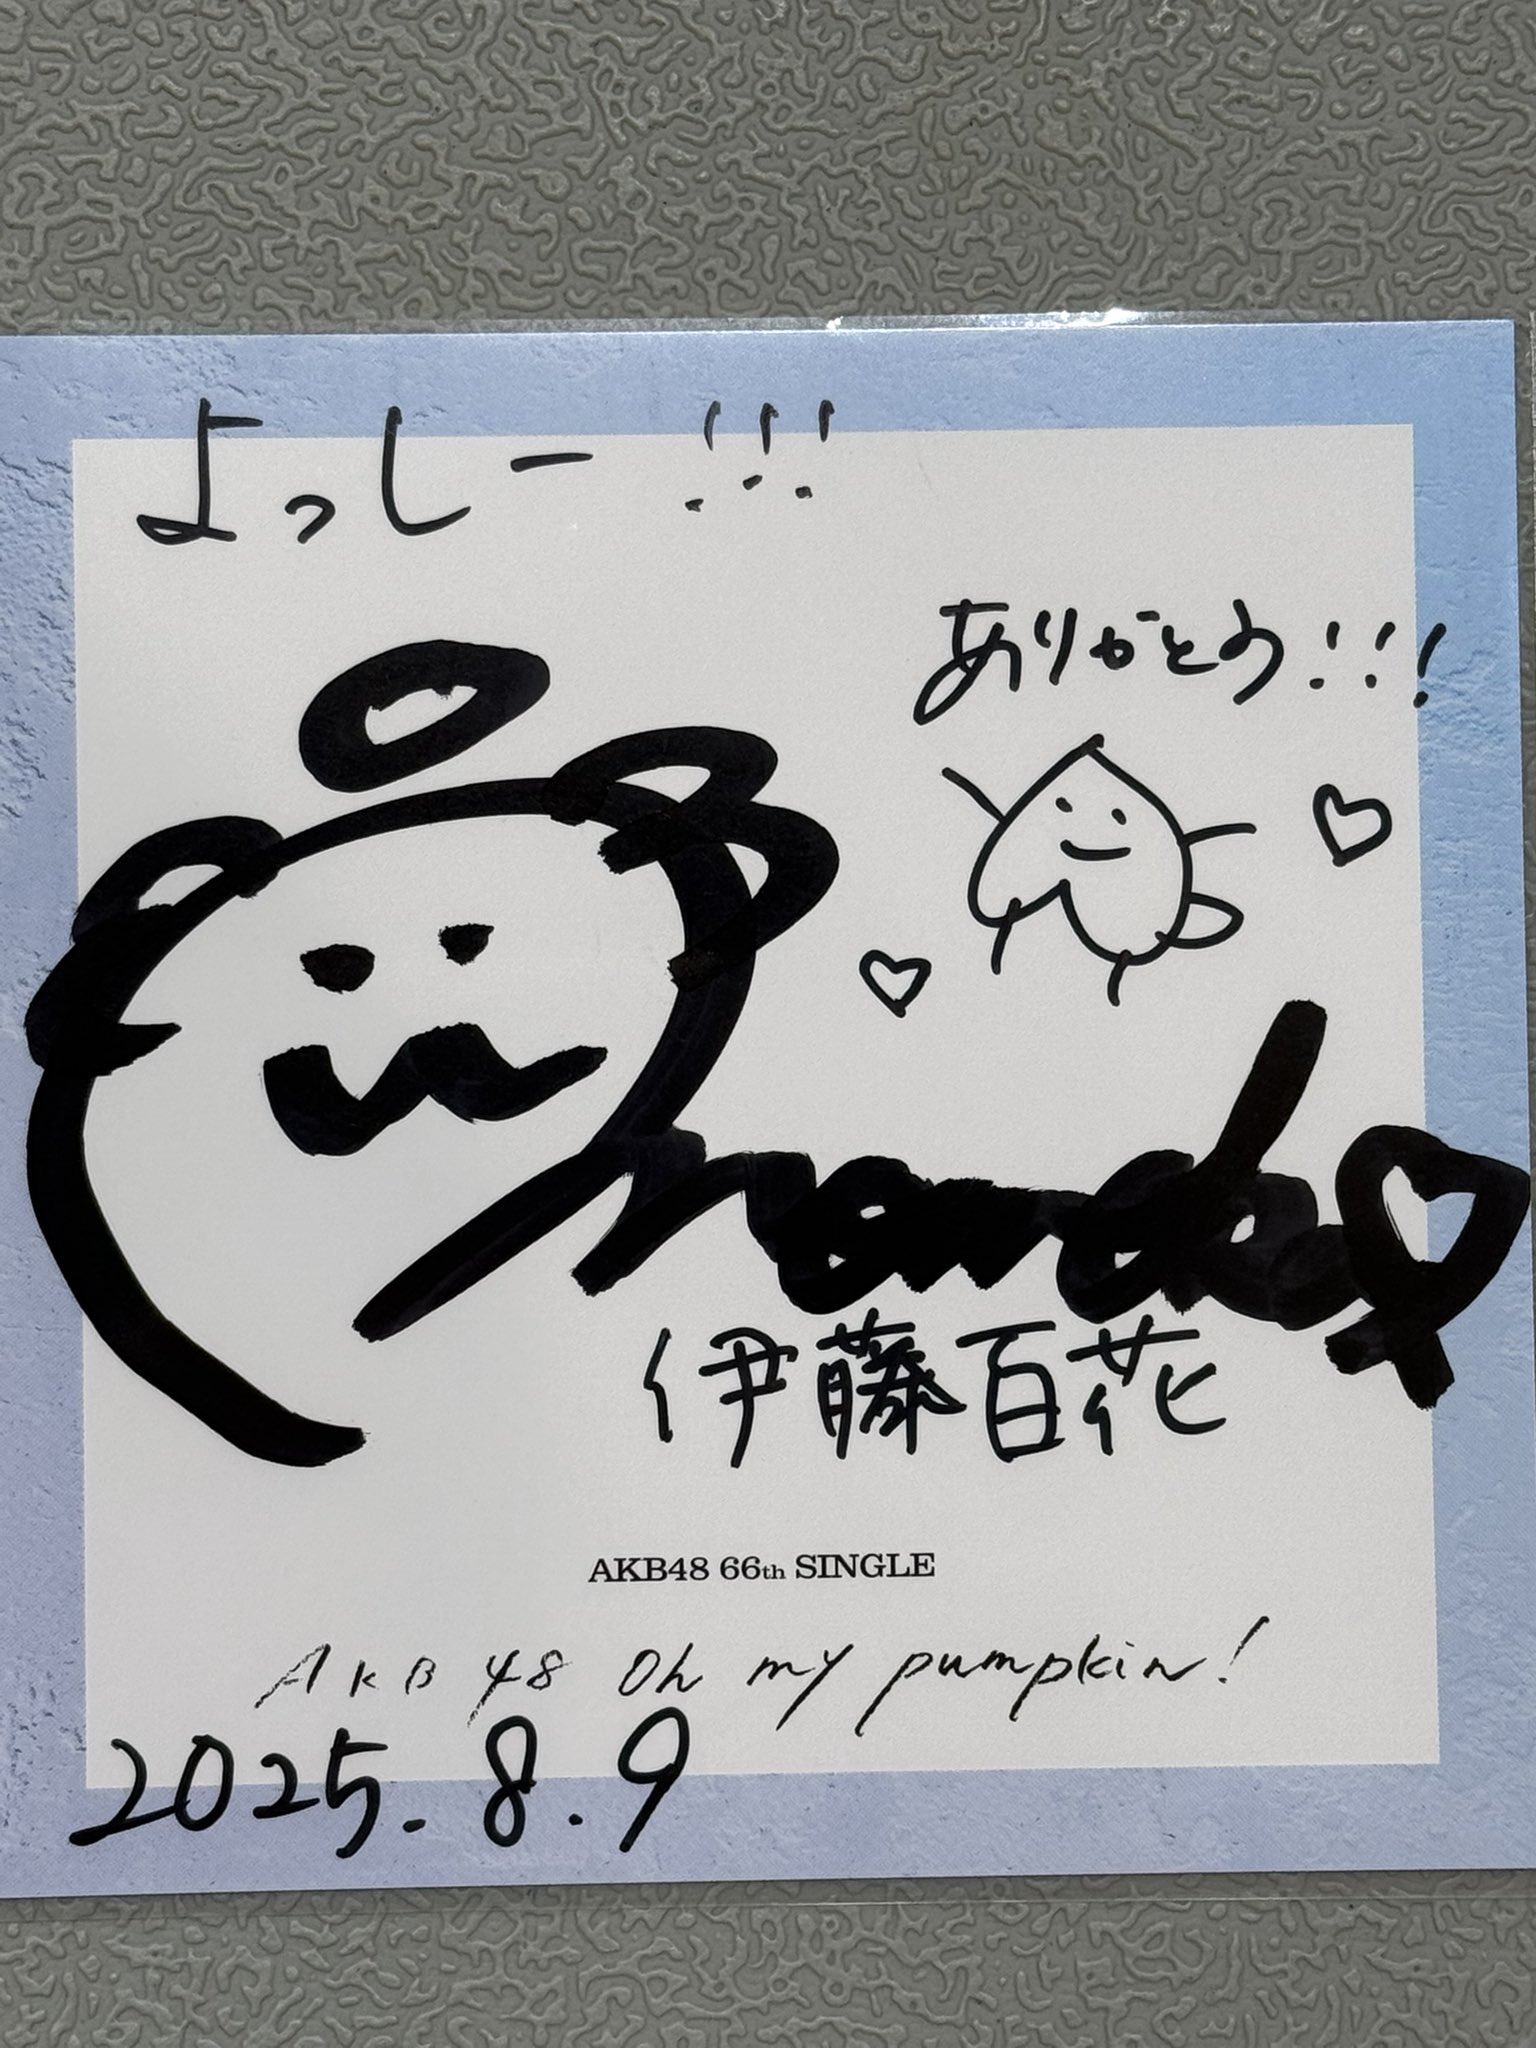 よっしー!!!
ありがとう!!!
Momoka
伊藤百花
AKB48 66th SINGLE
AKB48 Oh my pumpkin!
2025.8.9